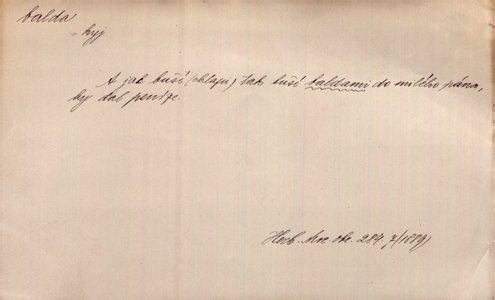 balda
- kyj
A jak buší (chlapi) tak buší baldami do milého pána,
by dal peníze.
Herb. Mor. obr. 284. 7/1889)